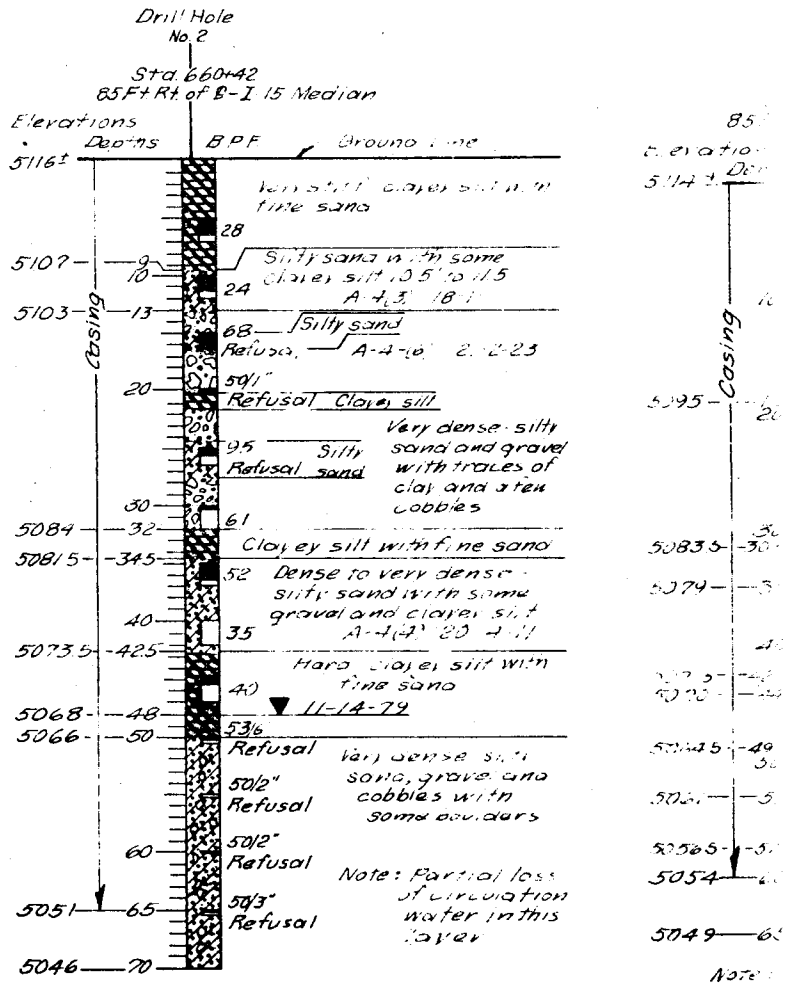 Drill Hole
No. 2
Sta. 660+42
85 Ft. Rt. of B-I-15 Median
Elevations
Depths B.P.F. Ground Line
5116±
Very stiff clayey silt with
fine sand
28
5107 9
10
Silty sand with some
clayey silt 10.5' to 11.5
24
A-4(3)
5103 13
68 Silty sand
Refusal A-4-(6)
50/1"
20
Refusal Clayey silt
Very dense silty
sand and gravel
with traces of
clay and a few
cobbles
95 Silty
Refusal sand
30
61
5084 32
Clayey silt with fine sand
5081.5 34.5
52
Dense to very dense
silty sand with some
gravel and clayey silt
A-4(4)
40
35
5073.5 42.5
Hard clayey silt with
fine sand
40
5068 48 11-14-79
5066 50
53/6
Refusal
Very dense silty
sand, gravel and
cobbles with
some boulders
50/2"
Refusal
50/2"
60
Refusal
Note: Partial loss
of circulation
water in this
layer
50/3"
5051 65
Refusal
5046 70
Casing
85
5114±
5095
5083.5 30
5079
5064.5 49
5056.5
5054
5049 65
Casing
Note: